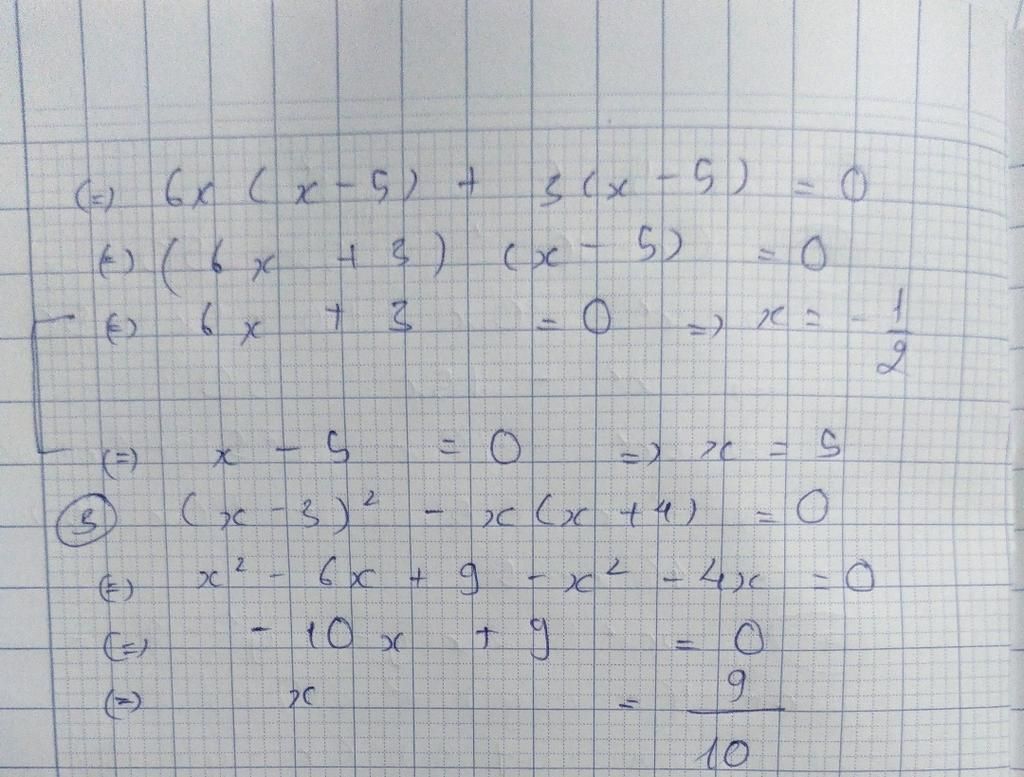 (=) 6x (x - 5) + 3(x - 5) = 0
(=) (6x + 3) (x - 5) = 0
(=) 6x + 3 = 0 => x = - 1/2
(=) x - 5 = 0 => x = 5
③ (x - 3)² - x(x + 4) = 0
(=) x² - 6x + 9 - x² - 4x = 0
(=) - 10x + 9 = 0
(=) x = 9/10